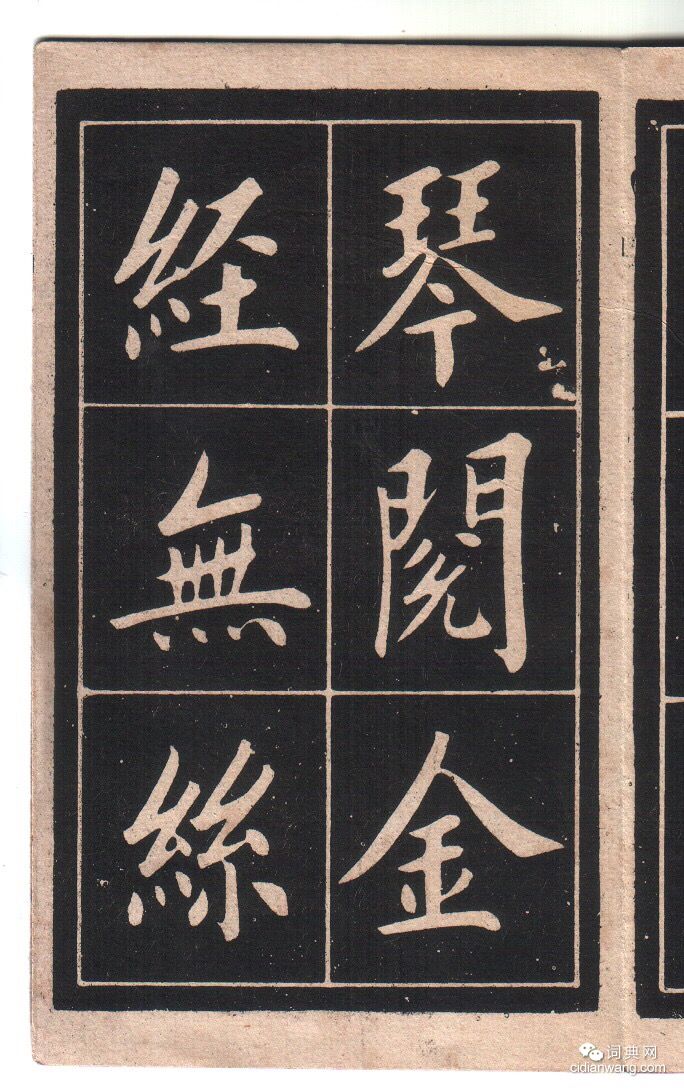 琴閱金
経無絲
词典网
cidianwang.com